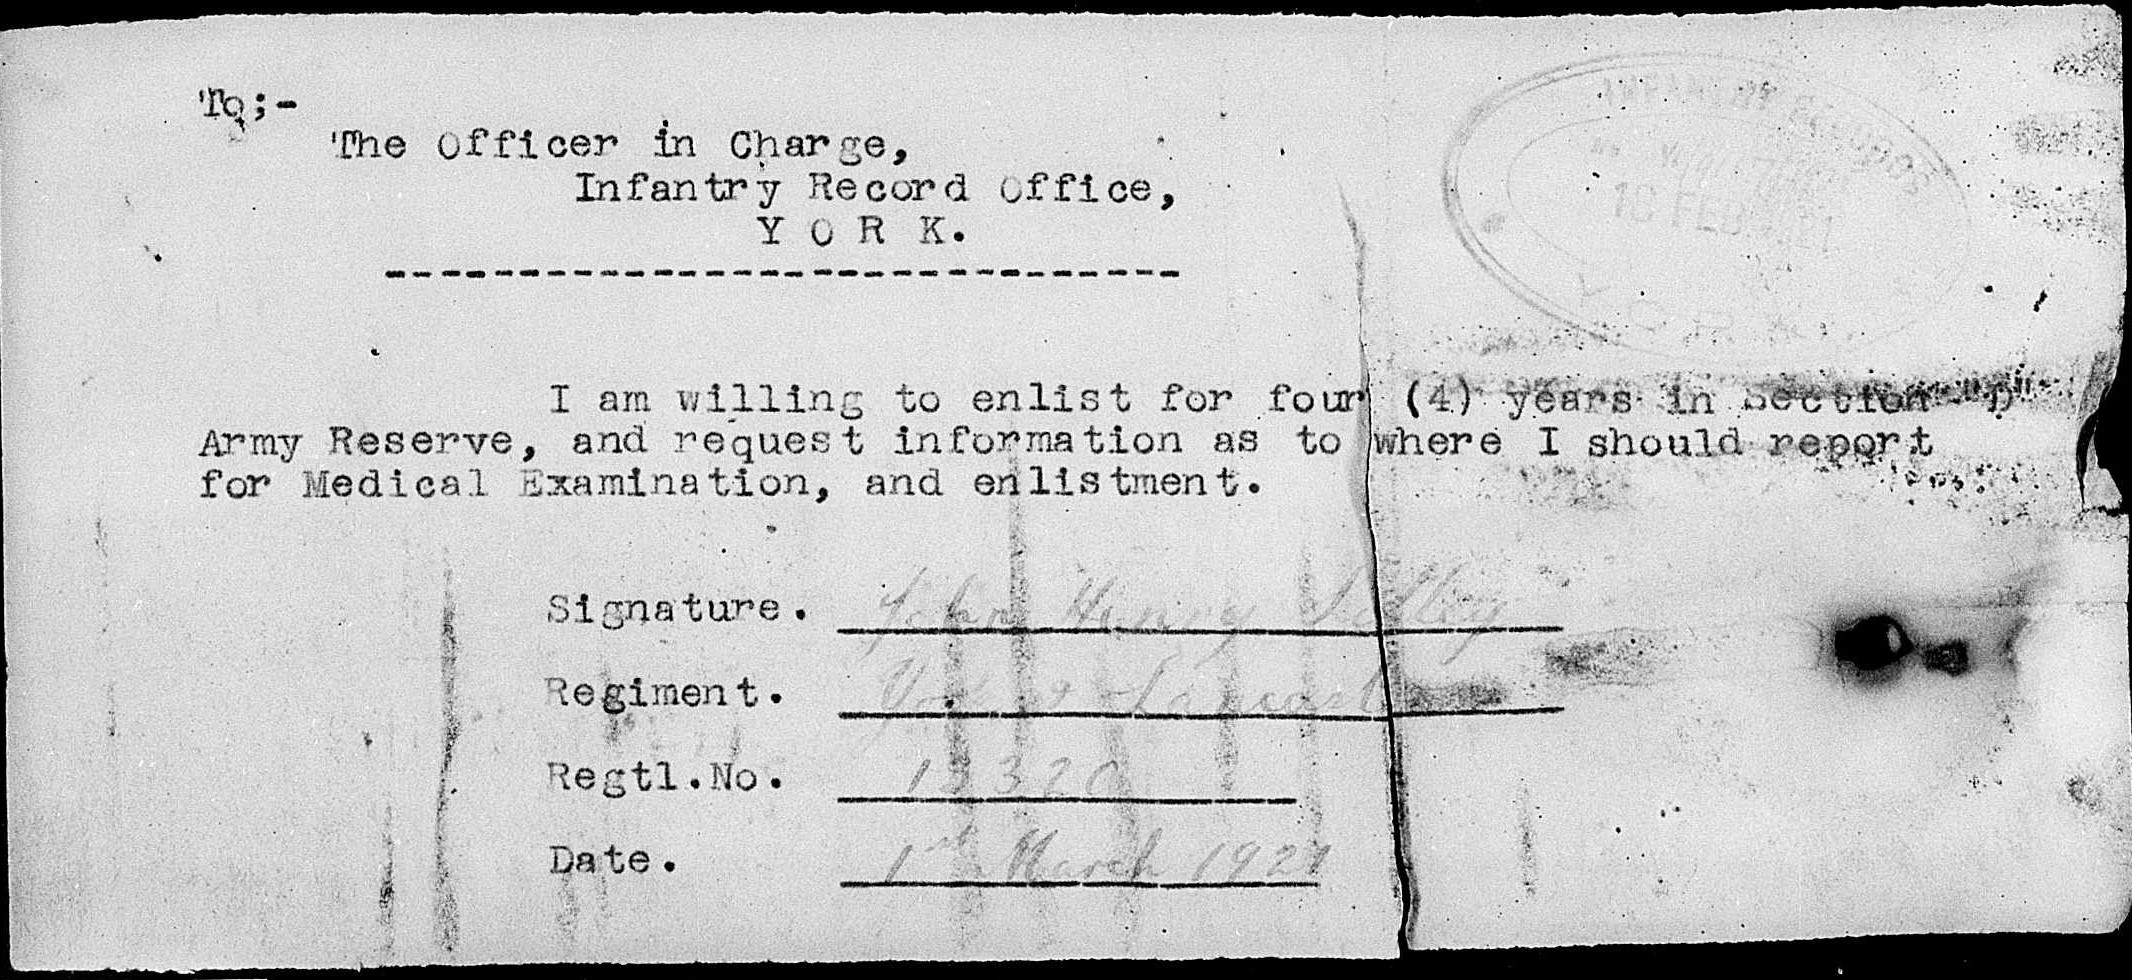 To;-
The Officer in Charge,
Infantry Record Office,
Y O R K.
INFANTRY RECORDS
FEB
YORK
I am willing to enlist for four (4) years in Section "D"
Army Reserve, and request information as to where I should report
for Medical Examination, and enlistment.
Signature. John Henry Selby
Regiment. York & Lancaster
Regtl.No.
Date. 1st March 1921